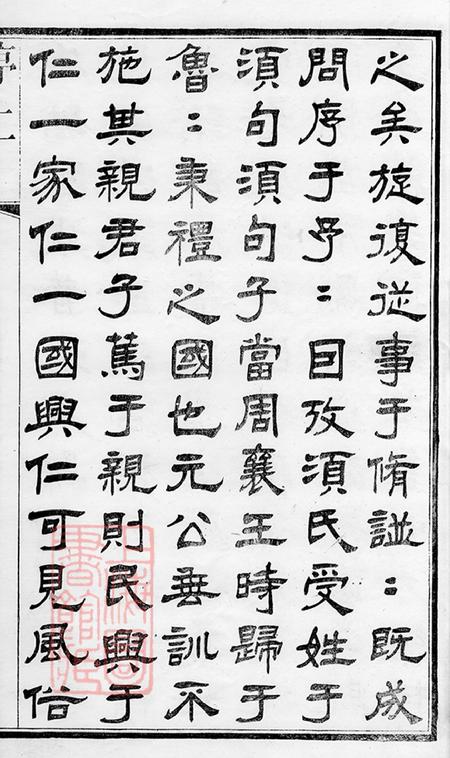 之矣旋復从事于脩諩〻既成
問序于予〻因攷須氏受姓于
須句須句子當周襄王時歸于
魯〻秉禮之國也元公垂訓不
施其親君子篤于親則民興于
仁一家仁一國興仁可見風俗